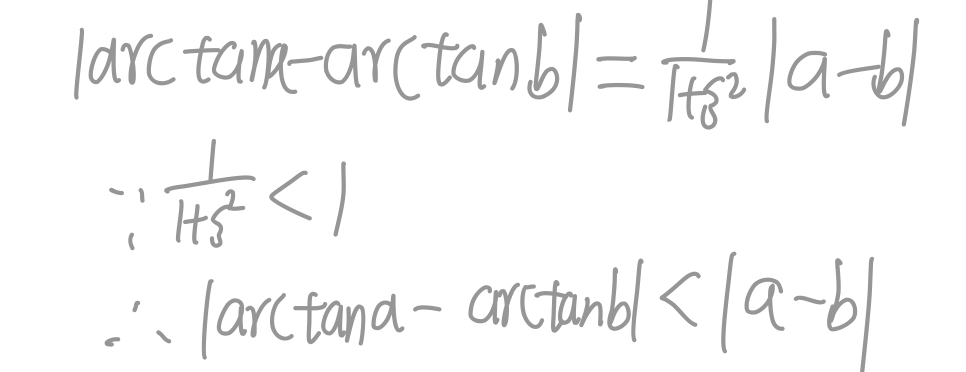 |arctana-arctanb| = \frac{1}{1+ξ^2} |a-b|
∵ \frac{1}{1+ξ^2} < 1
∴ |arctana - arctanb| < |a-b|